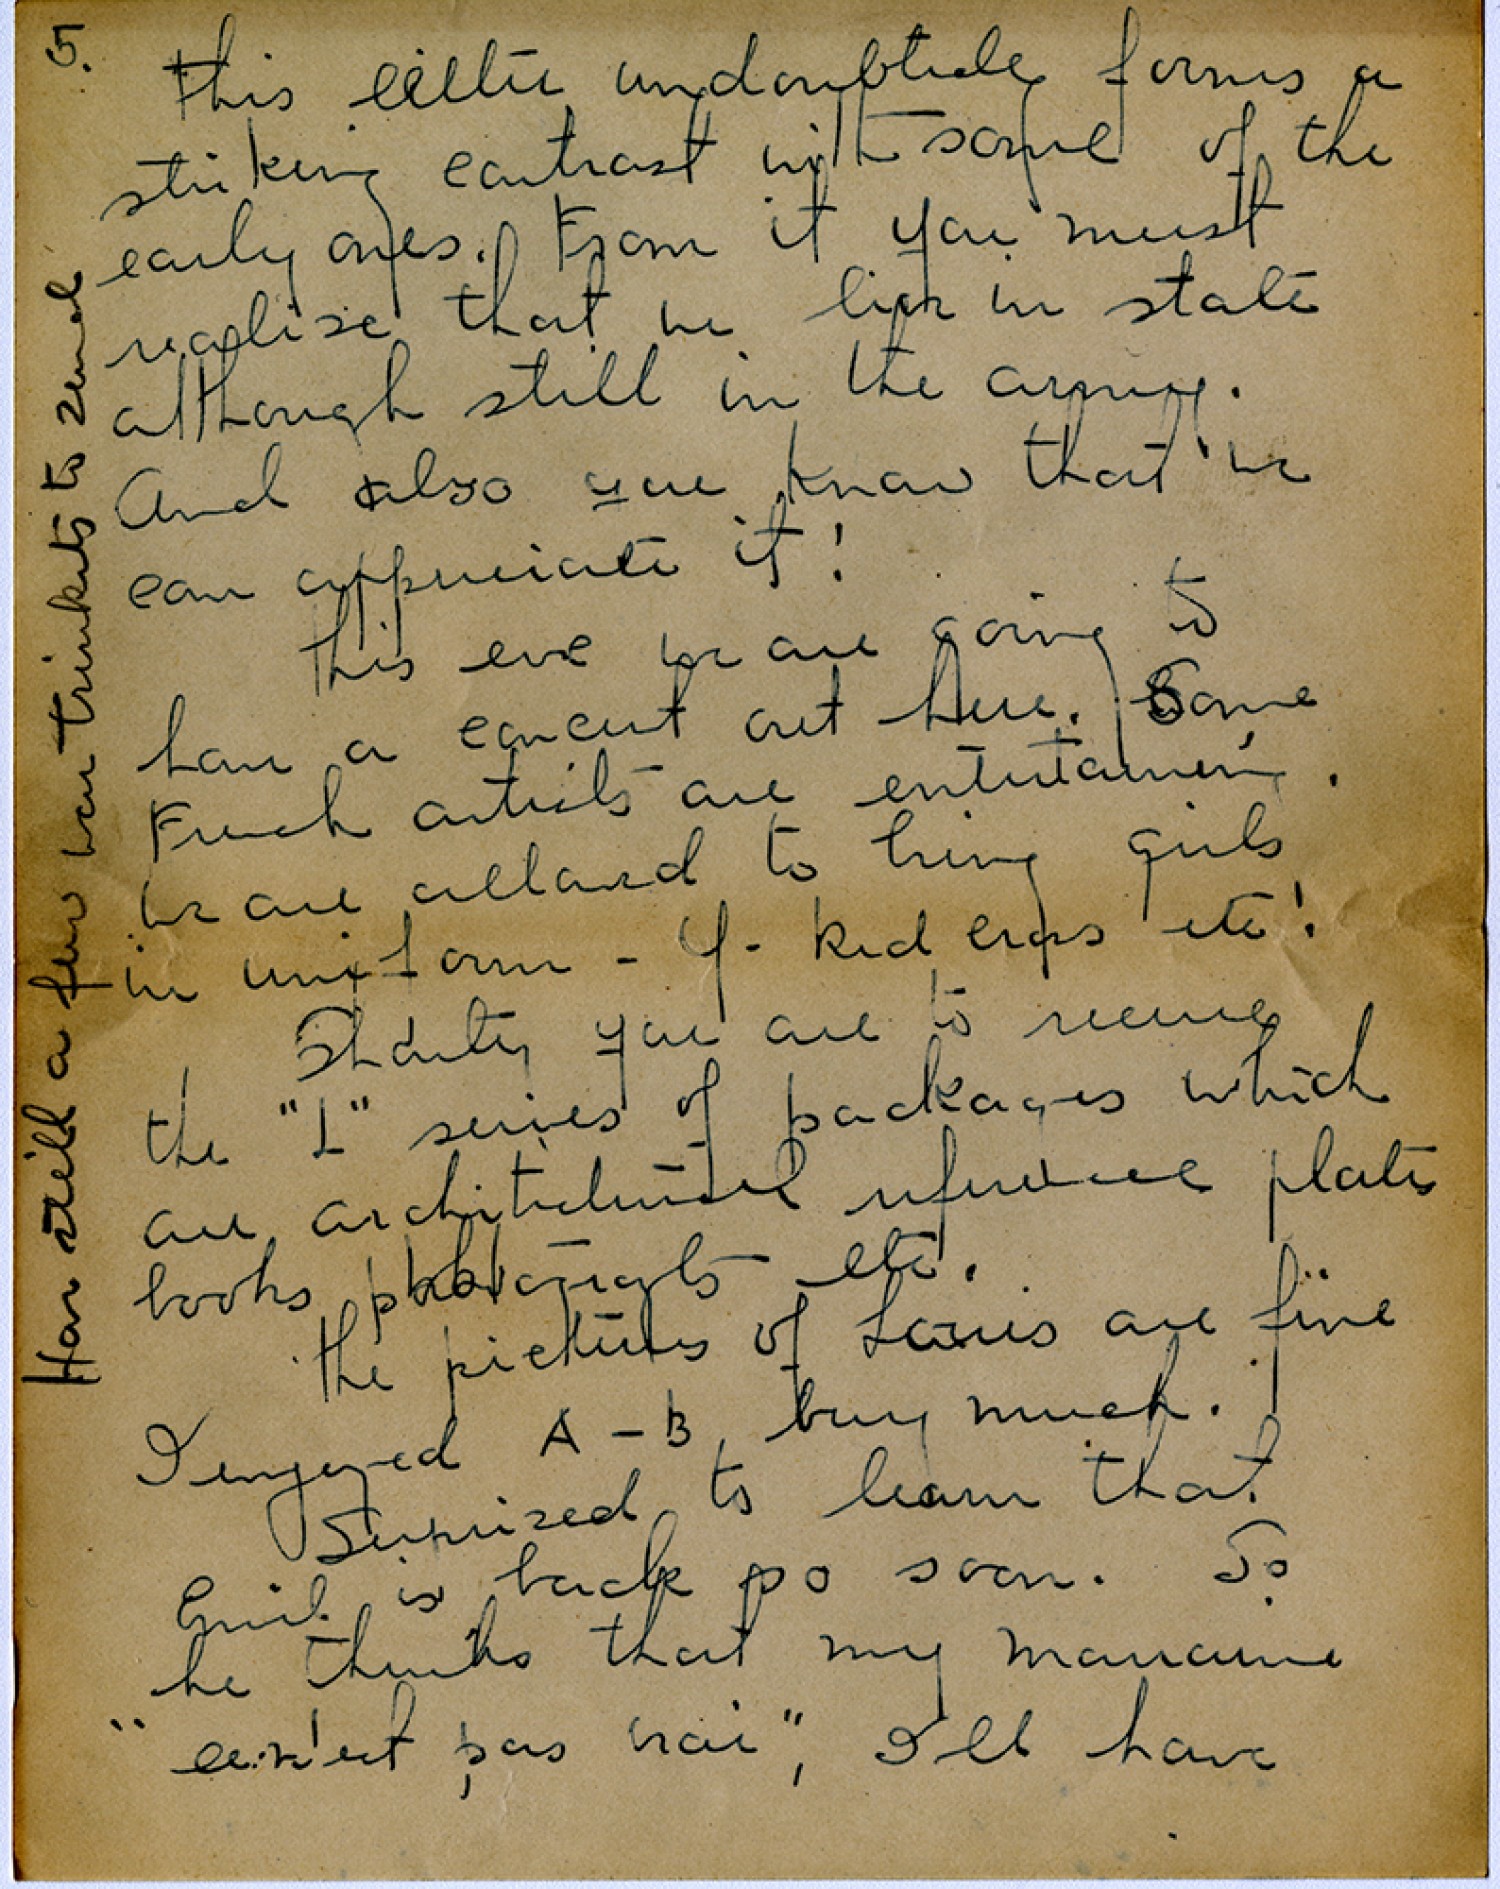 5.
This letter undoubtedly forms a
striking contrast with some of the
early ones. From it you must
realise that we live in state
although still in the army.
And also you know that we
can appreciate it!
This eve we are going to
have a concert out here. Some
French artists are entertaining.
We are allowed to bring girls
in uniform - Y- Red Cross etc!
Shortly you are to receive
the "L" series of packages which
are architectural reference plates
books photographs etc.
The pictures of Louis are fine
I enjoyed A-B, very much.
Surprised to learn that
Emil is back so soon. So
he thinks that my
"ce n'est pas vrai", I'll have
Have still a few war trinkets to send